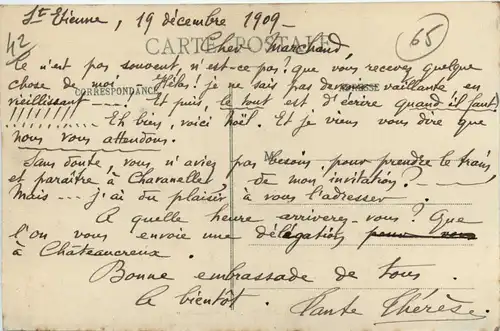 St Etienne, 19 décembre 1909 -
42
65
CARTE POSTALE
Cher Marchand,
Ce n'est pas souvent, n'est-ce pas? que vous recevez quelque
chose de moi. Hélas! je ne sais pas devenir vaillante en
CORRESPONDANCE
ADRESSE
vieillissant ----. Et puis, le tout est d'écrire quand il faut.
!!!!!!!......... Eh bien, voici Noël. Et je viens vous dire que
nous vous attendons.
Sans doute, vous n'aviez pas besoin, pour prendre le train,
et paraître à Chavanelle, de mon invitation? -
Mais --- j'ai du plaisir à vous l'adresser.
A quelle heure arriverez-vous? Que
l'on vous envoie une délégation pour vous
à Châteaucreux.
Bonne embrassade de tous.
A bientôt. Tante Thérèse.